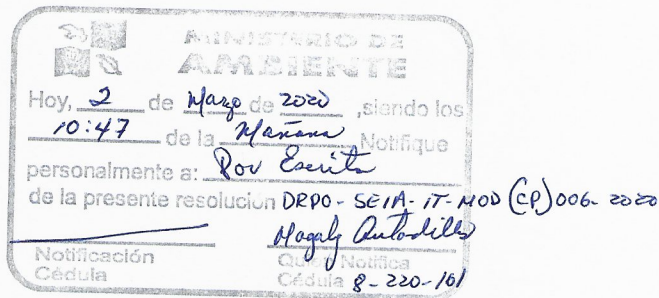 MINISTERIO DE
AMBIENTE
Hoy, 2 de Marzo de 2020 ,siendo los
10:47 de la Mañana Notifique
personalmente a: Por Escrito
de la presente resolucion DRPO-SEIA-IT-MOD (CP) 006-2020
Magaly
Notificación Quien Notifica
Cédula Cédula 8-220-161